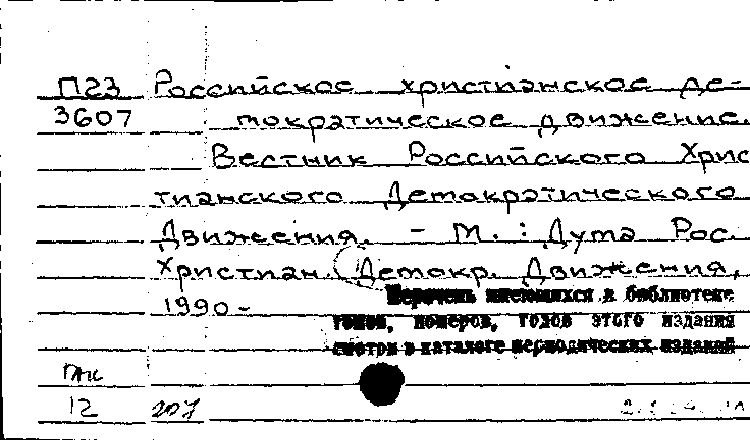 П23 Российское христианское де-
3607 мократическое движение.
Вестник Российского Хрис
тианского Демократического
Движения. - М. : Дума Рос.
Христиан. Демокр. Движения,
1990-
Перечень имеющихся в библиотеке
томов, номеров, годов этого издания
смотри в каталоге периодических изданий
12 207